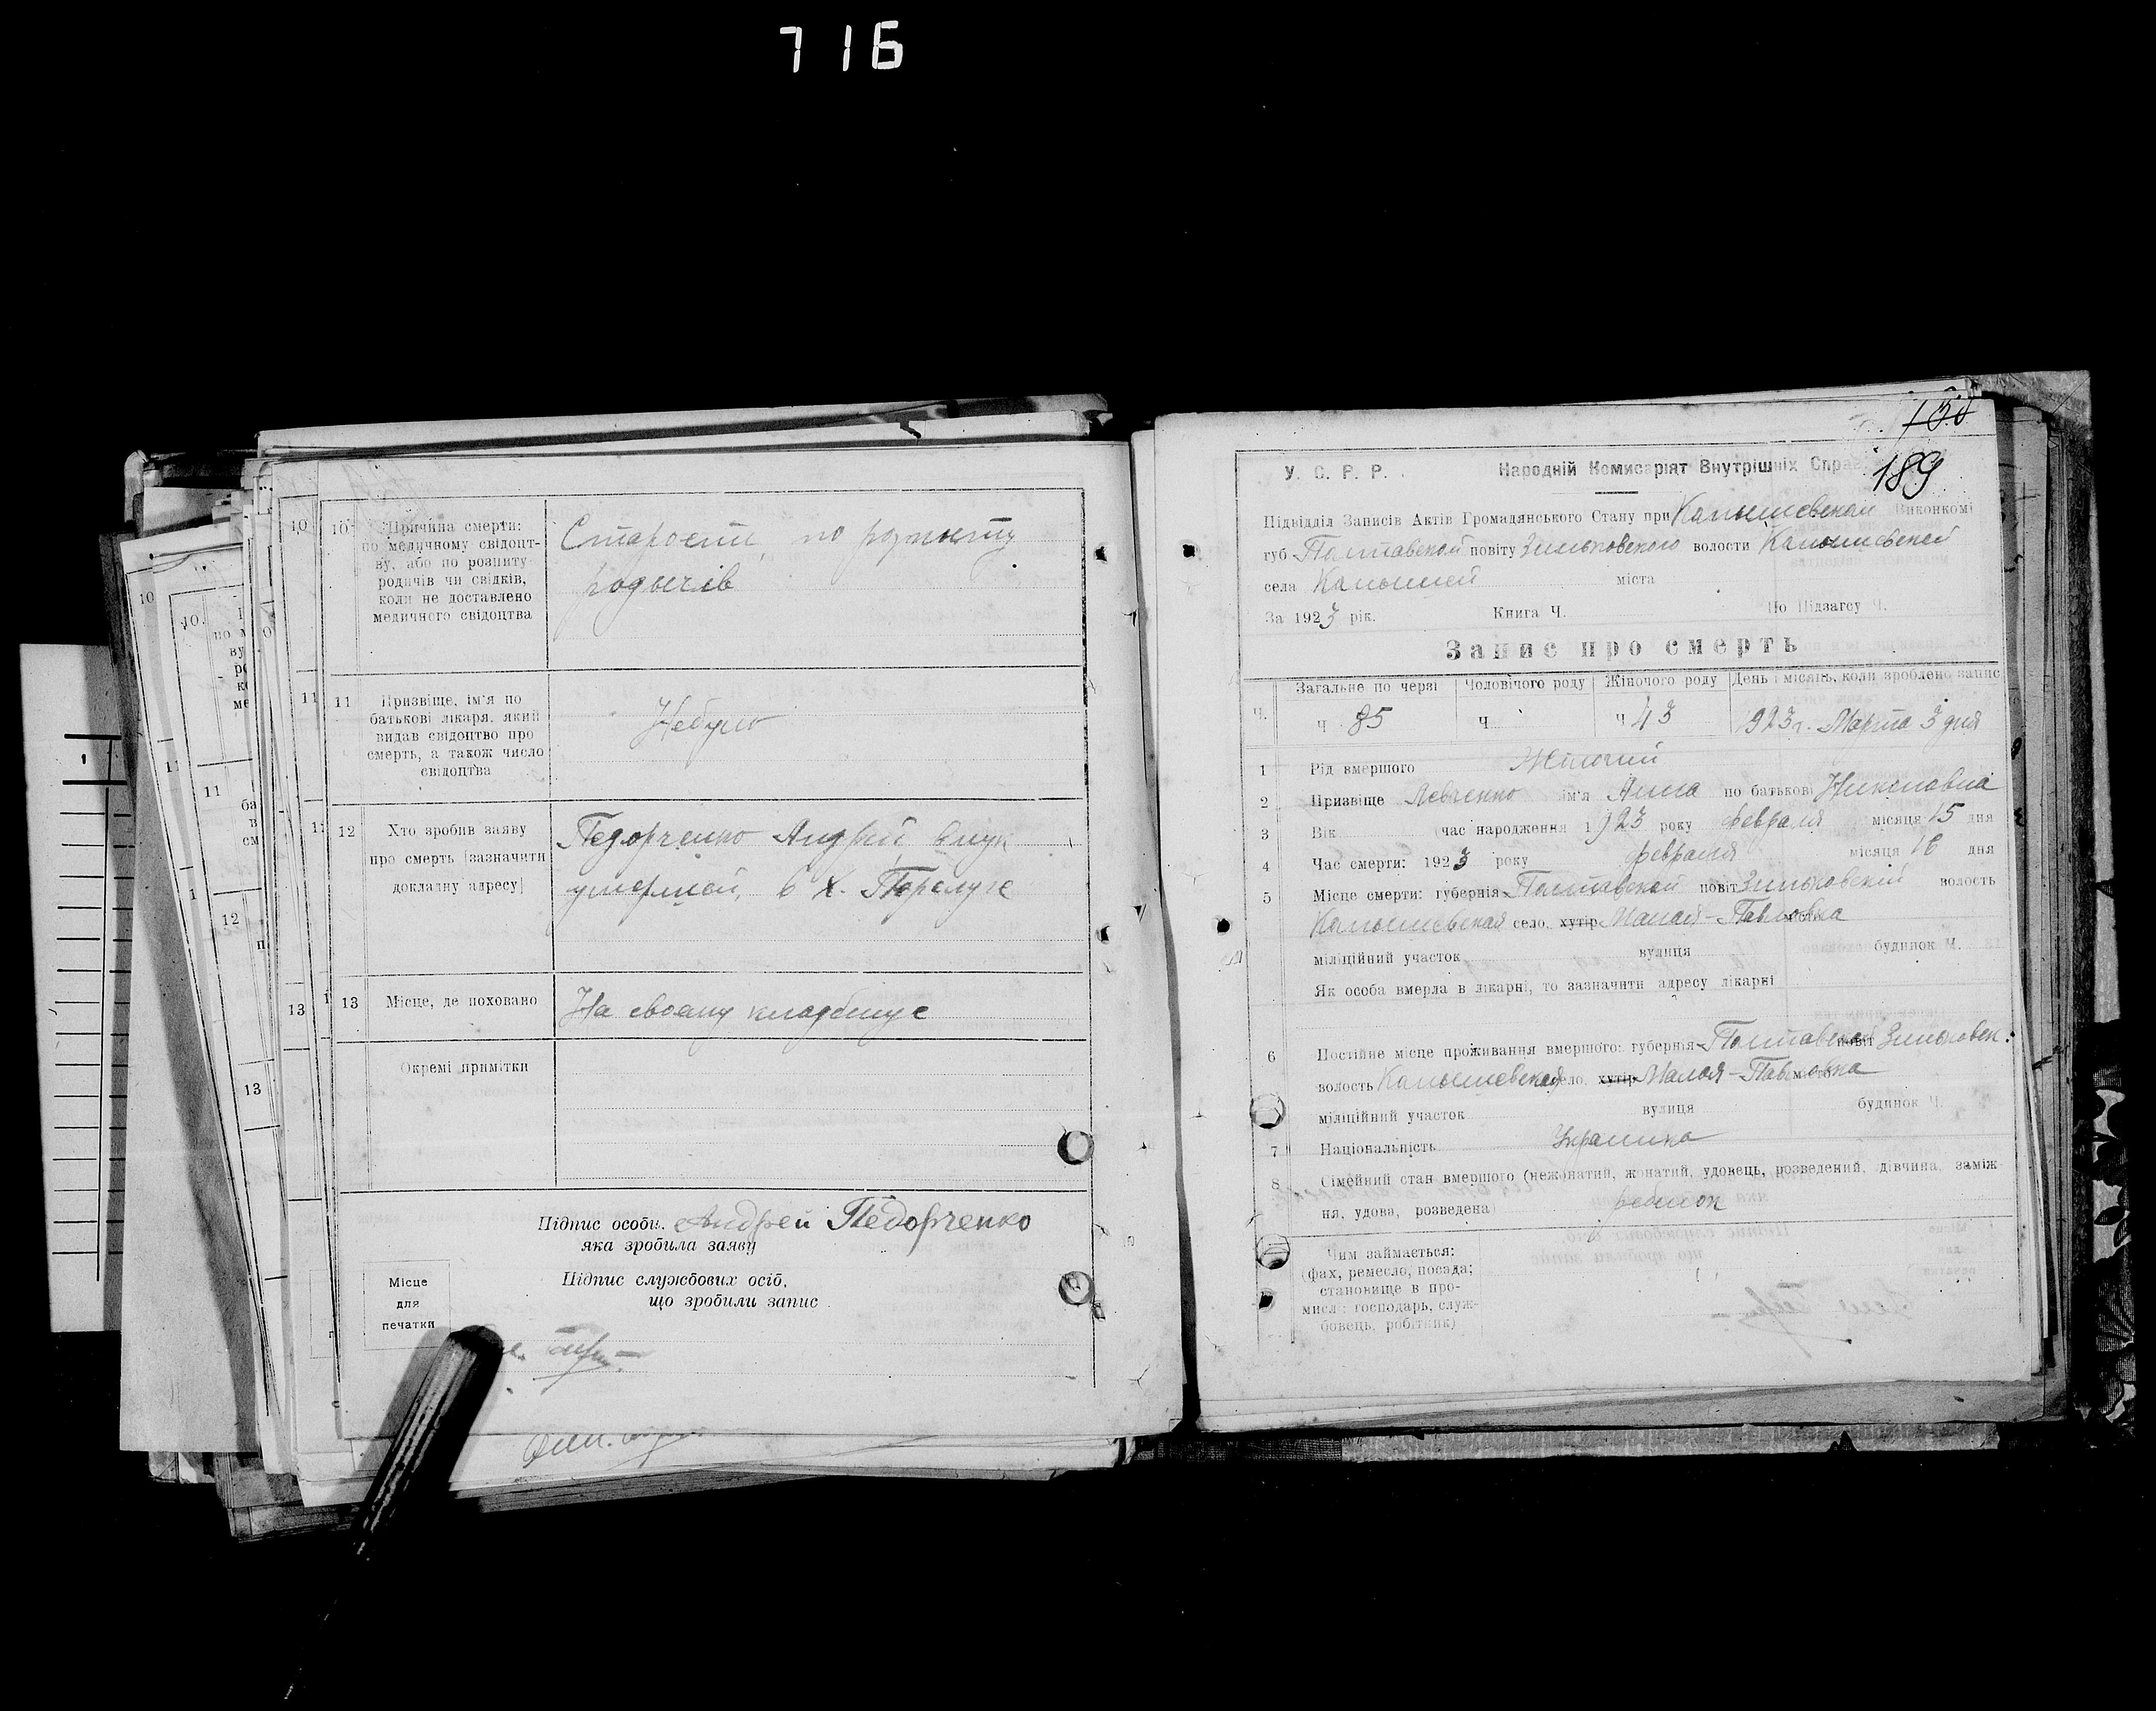 716
10
Причина смерти:
по медичному свідоцт-
ву, або по розпиту
родичів чи свідків,
коли не доставлено
медичного свідоцтва
Старости, по розпиту
родычів
11
Призвіще, ім'я по
батькові лікаря, який
видав свідоцтво про
смерть, а також число
свідоцтва
Небуло
12
Хто зробив заяву
про смерть [зазначити
докладну адресу]
Педорченко Андрій внук
умершей, в х. Перелуге
13
Місце, де поховано
На своему кладбище
Окремі примітки
Підпис особи, Андрей Педорченко
яка зробила заяву
Підпис службових осіб,
що зробили запис
Місце
для
печатки
189
У. С. Р. Р. Народній Комисаріят Внутрішніх Справ
Підвідділ Записів Актів Громадянського Стану при Камышевском Виконкомі
губ Полтавской повіту Зиньковского волости Камышевской
села Камышей міста
За 1923 рік. Книга Ч. По Підзагсу Ч.
Запис про смерть
Ч. Загальне по черзі Чоловічого роду Жіночого роду День і місяць, коли зроблено запис
ч 85 ч ч 43 1923 г. Марта 3 дня
1 Рід вмершого Жіночий
2 Призвіще Левченко ім'я Анна по батькові Николаевна
3 Вік (час народження 1923 року февраля місяця 15 дня
4 Час смерти: 1923 року февраля місяця 16 дня
5 Місце смерти: губернія Полтавской повіт Зиньковский волость
Камышевская село, хутір Малая-Павловка місто
міліційний участок вулиця будинок Ч.
Як особа вмерла в лікарні, то зазначити адресу лікарні
6 Постійне місце проживання вмершого: губернія Полтавской повіт Зиньковск:
волость Камышевская село, хутір Малая-Павловка місто
міліційний участок вулиця будинок Ч.
7 Національність Украинка
8 Сімейний стан вмершого (нежонатий, жонатий, удовець, розведений, дівчина, заміж-
ня, удова, розведена) ребенок
Чим займається:
(фах, ремесло, посада;
становище в про-
мислі: господарь, служ-
бовець, робітник)